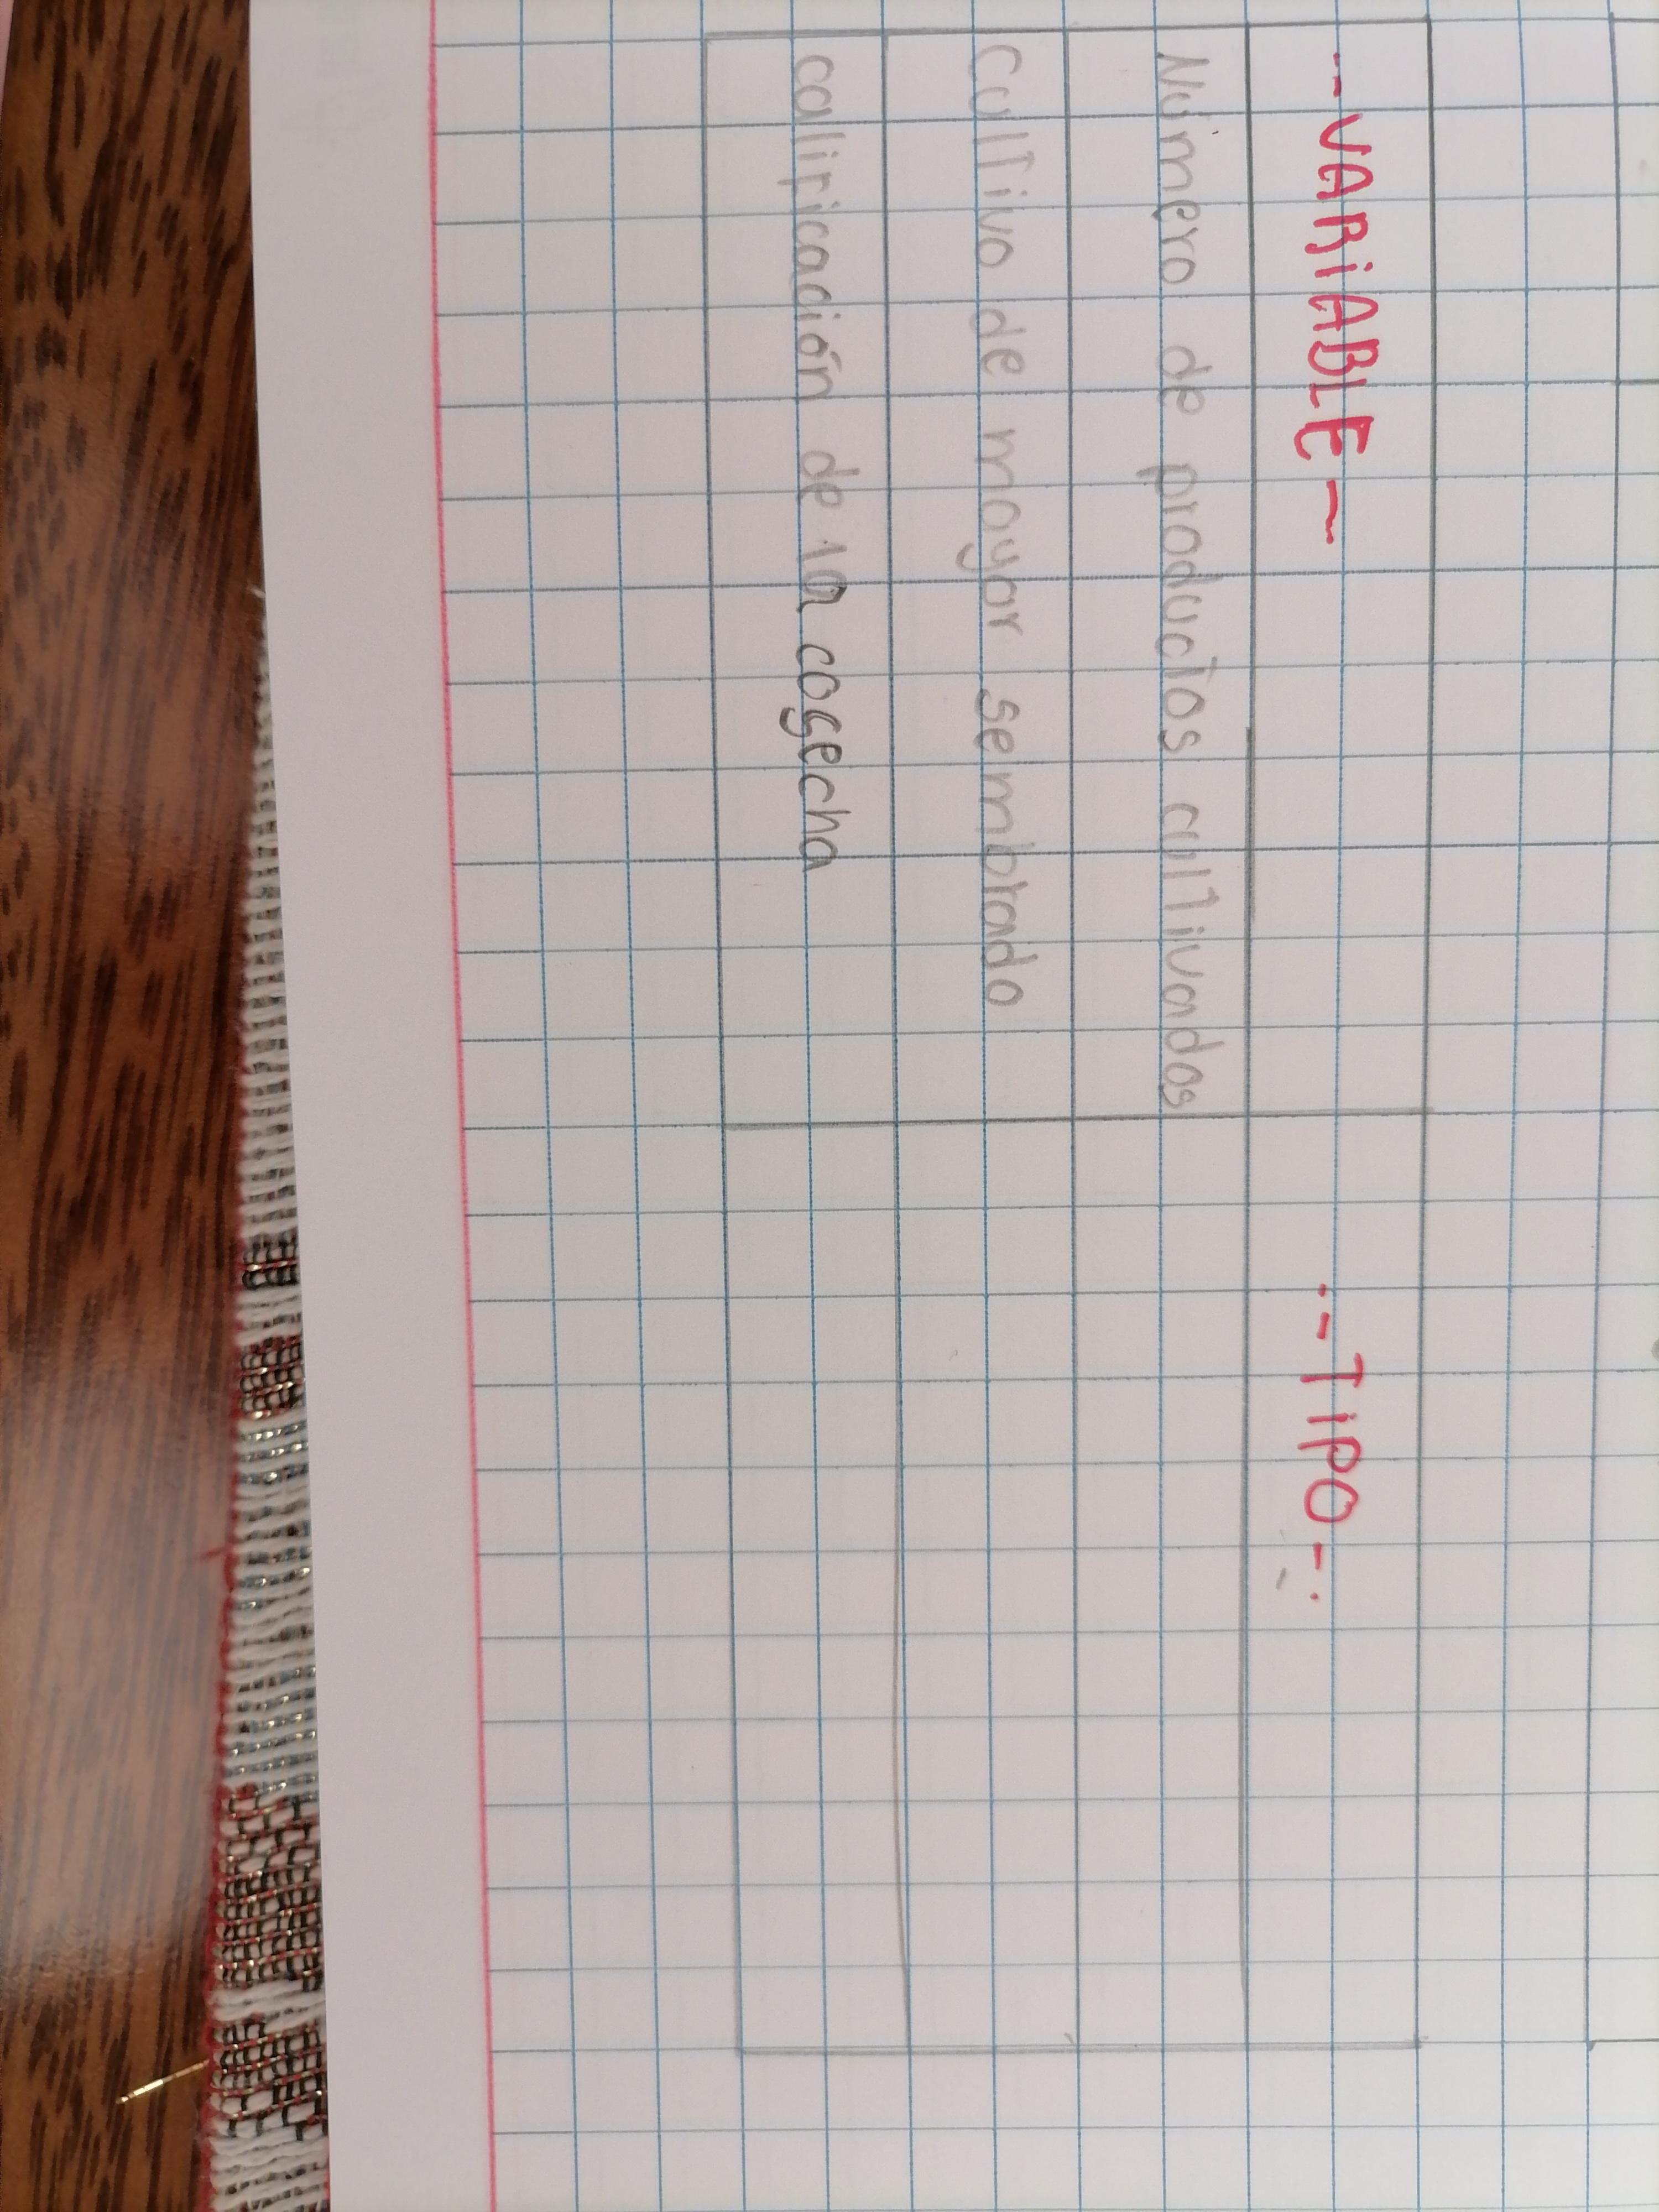 --VARiABLE-
--TiPO-.
Número de productos cultivados
Cultivo de mayor sembrado
calificación de la cosecha